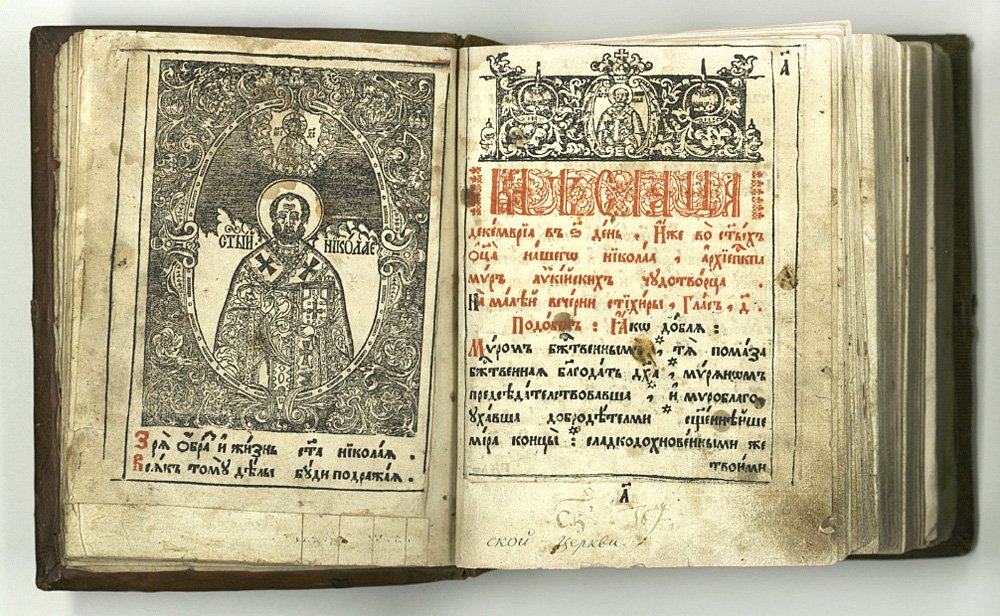 СТ҃ЫЙ НИКОЛАЕ
Зрѧ̀ Ѻ҆́бра и҆ жи́знь ст҃а нїкола́ѧ .
Всѧ́къ томꙋ̀ дѣ́лы бꙋ́ди подража́ѧ .
а҃
МѢСѦЦА
деке́мврїа въ ѕ҃ де́нь . И҆́же во ст҃ы́хъ
ѻ҆ц҃а̀ на́шегѡ нїкола́а , а҆рхїепⷭ҇кпа
мѵ́ръ лѷкі́йскихъ чꙋдотво́рца .
На ма́лѣй вече́рни стїхи́ры , Гла́съ , д҃ .
Подо́бенъ : Ꙗ҆́кѡ до́блѧ :
Мѵ́ромъ бжⷭ҇твеннымъ , тѧ̀ пома́за
бжⷭ҇твеннаѧ благода́ть дх҃а , мѵ́рѧнѡмъ
предсѣда́телствовавша , и҆ мѵроблаго
ꙋха́вша добродѣ́телми сщ҃еннѣ́йше
мі́ра концы̀ : сладкодохнове́нными же
твои́ми
а҃
ской церкви.